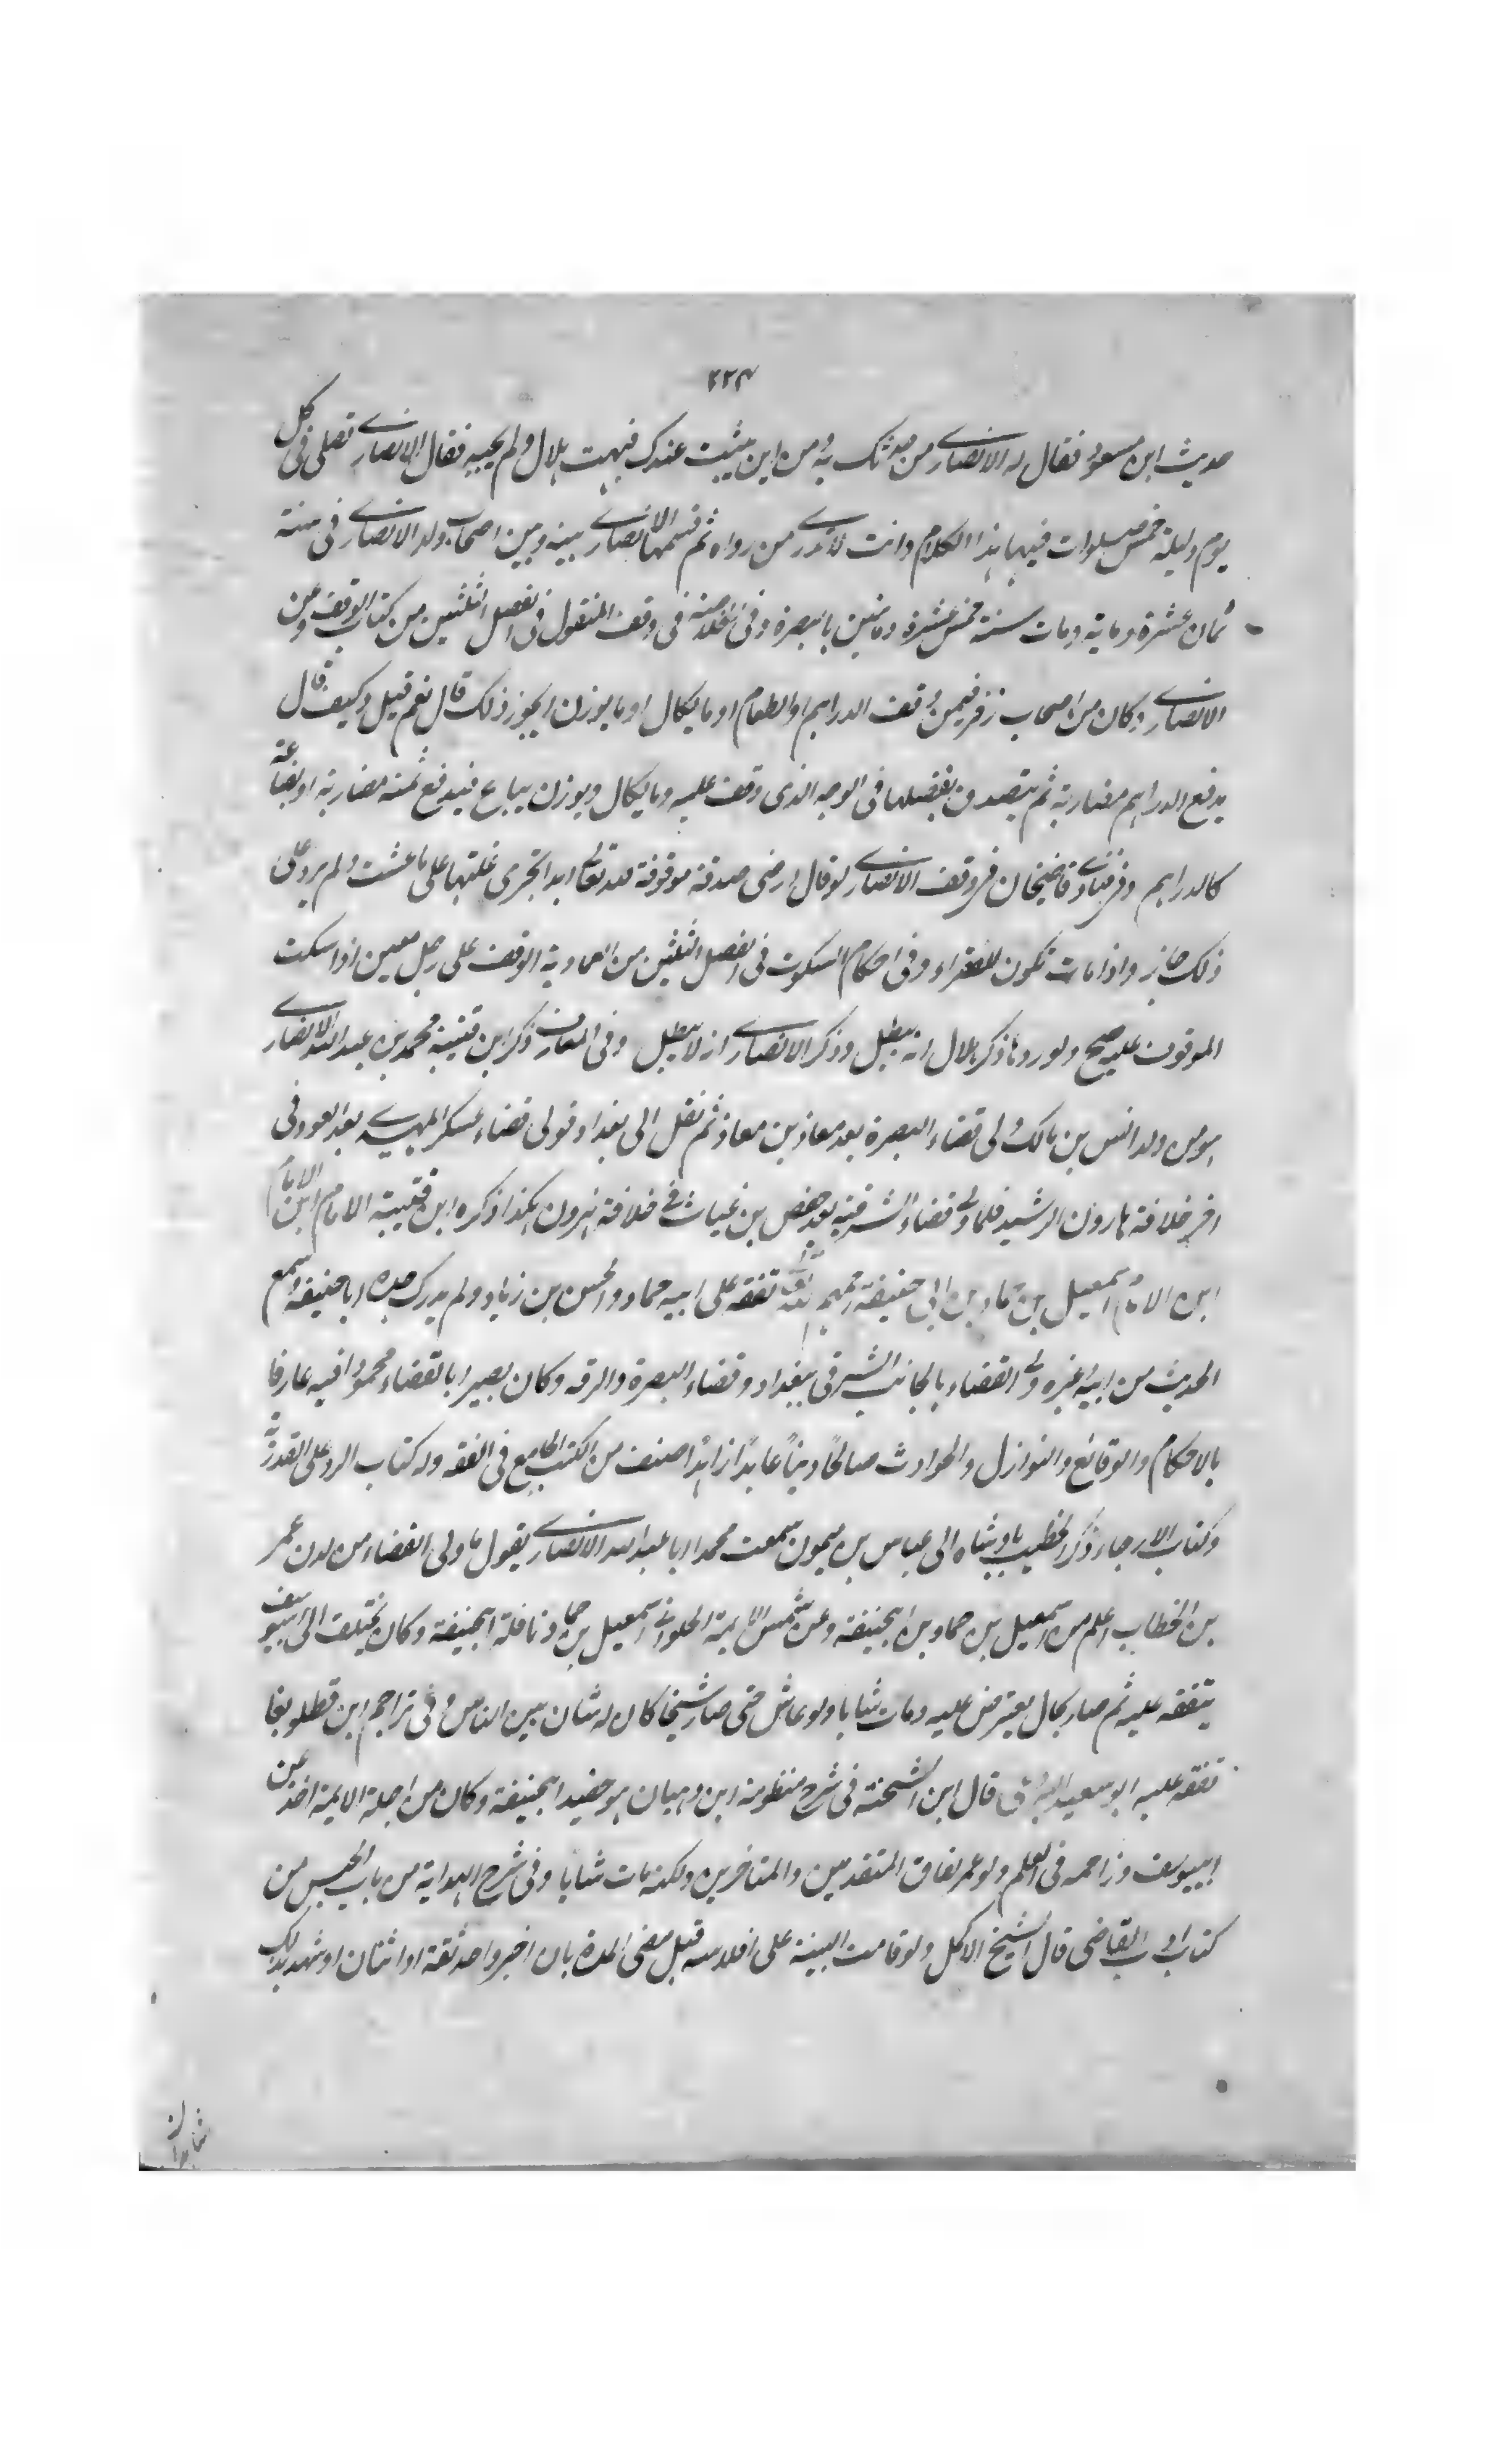 ٢٢٤
حديث ابن مسعود فقال له الانصاري من حدثك به ومن اين يثبت عندك فبهت هلال ولم يجبه فقال الانصاري تصلى فى كل
يوم وليلة خمس صلوات فيها هذا الكلام وانت لا تدري من رواه ثم قسمها الانصاري بينه وبين اصحابه ولد الانصاري فى سنة
ثمان عشرة وماية ومات سنة خمس عشرة ومائتين بالبصرة وفى الخلاصة فى وقف المنقول فى الفصل الثلثين من كتاب الوقف وعن
الانصاري وكان من اصحاب زفر فيمن وقف الدراهم او الطعام او ما يكال او ما يوزن ايجوز ذلك قال نعم قيل وكيف قال
يدفع الدراهم مضاربة ثم يتصدق بفضلها فى الوجه الذى وقف عليه وما يكال ويوزن يباع فيدفع ثمنه مضاربة او بضاعة
كالدراهم وفى فتاوى قاضيخان فى وقف الانصاري لو قال ارضى صدقة موقوفة لله تعالى ابدا تجرى غلتها على ما عشت ولم يزد على
ذلك جاز واذا مات تكون للفقراء وفى احكام السكوت فى الفصل الثلثين من العمادية الوقف على رجل معين اذا سكت
الموقوف عليه صح ولو رده ذكر هلال انه يبطل وذكر الانصاري انه لا يبطل وفى المعارف ذكر ابن قتيبة محمد بن عبد الله الانصاري
هو من ولد انس بن مالك ولى قضاء البصرة بعد معاذ بن معاذ ثم نقل الى بغداد فولى قضاء عسكر المهدي بعد العوفى
اخر خلافة هارون الرشيد فلما ولي قضاء الشرقية بعد حفص بن غياث فى خلافة هرون هكذا ذكره ابن قتيبة الامام ابن الامام
ابن الامام اسمعيل بن حماد بن ابى حنيفة رحمهم الله تعالى تفقه على ابيه حماد والحسن بن زياد ولم يدرك جده ابا حنيفة اسمع
الحديث من ابيه وغيره ولي القضاء بالجانب الشرقى ببغداد وقضاء البصرة والرقة وكان بصيرا بالقضاء محمودا فيه عارفا
بالاحكام والوقائع والنوازل والحوادث صالحًا دينًا عابدًا زاهدًا صنف من الكتب الجامع فى الفقه وله كتاب الرد على القدرية
وكتاب الارجاء ذكر الخطيب باسناده الى عباس بن ميمون سمعت محمدا ابا عبد الله الانصاري يقول ما ولى القضاء من لدن عمر
بن الخطاب اعلم من اسمعيل بن حماد بن ابيحنيفة وعن شمس الايمة الحلوائى اسمعيل بن حماد نافلة ابيحنيفة وكان يختلف الى ابييوسف
يتفقه عليه ثم صار بحال يعترض عليه ومات شابا ولو عاش حتى صار شيخا كان له شان بين الناس وفى تراجم ابن قطلوبغا
تفقه عليه ابو سعيد البردعى قال ابن الشحنة فى شرح منظومة ابن وهبان هو حفيد ابيحنيفة وكان من اجلة الايمة اخذ عن
ابييوسف وزاحمه فى العلم ولو عمر لفاق المتقدمين والمتاخرين ولكنه مات شابا وفى شرح الهداية من باب الحبس من
كتاب ادب القاضى قال الشيخ الاكمل ولو قامت البينة على افلاسه قبل مضى المدة بان اخبر واحد ثقة او اثنان او شهد بذلك
شاهدان